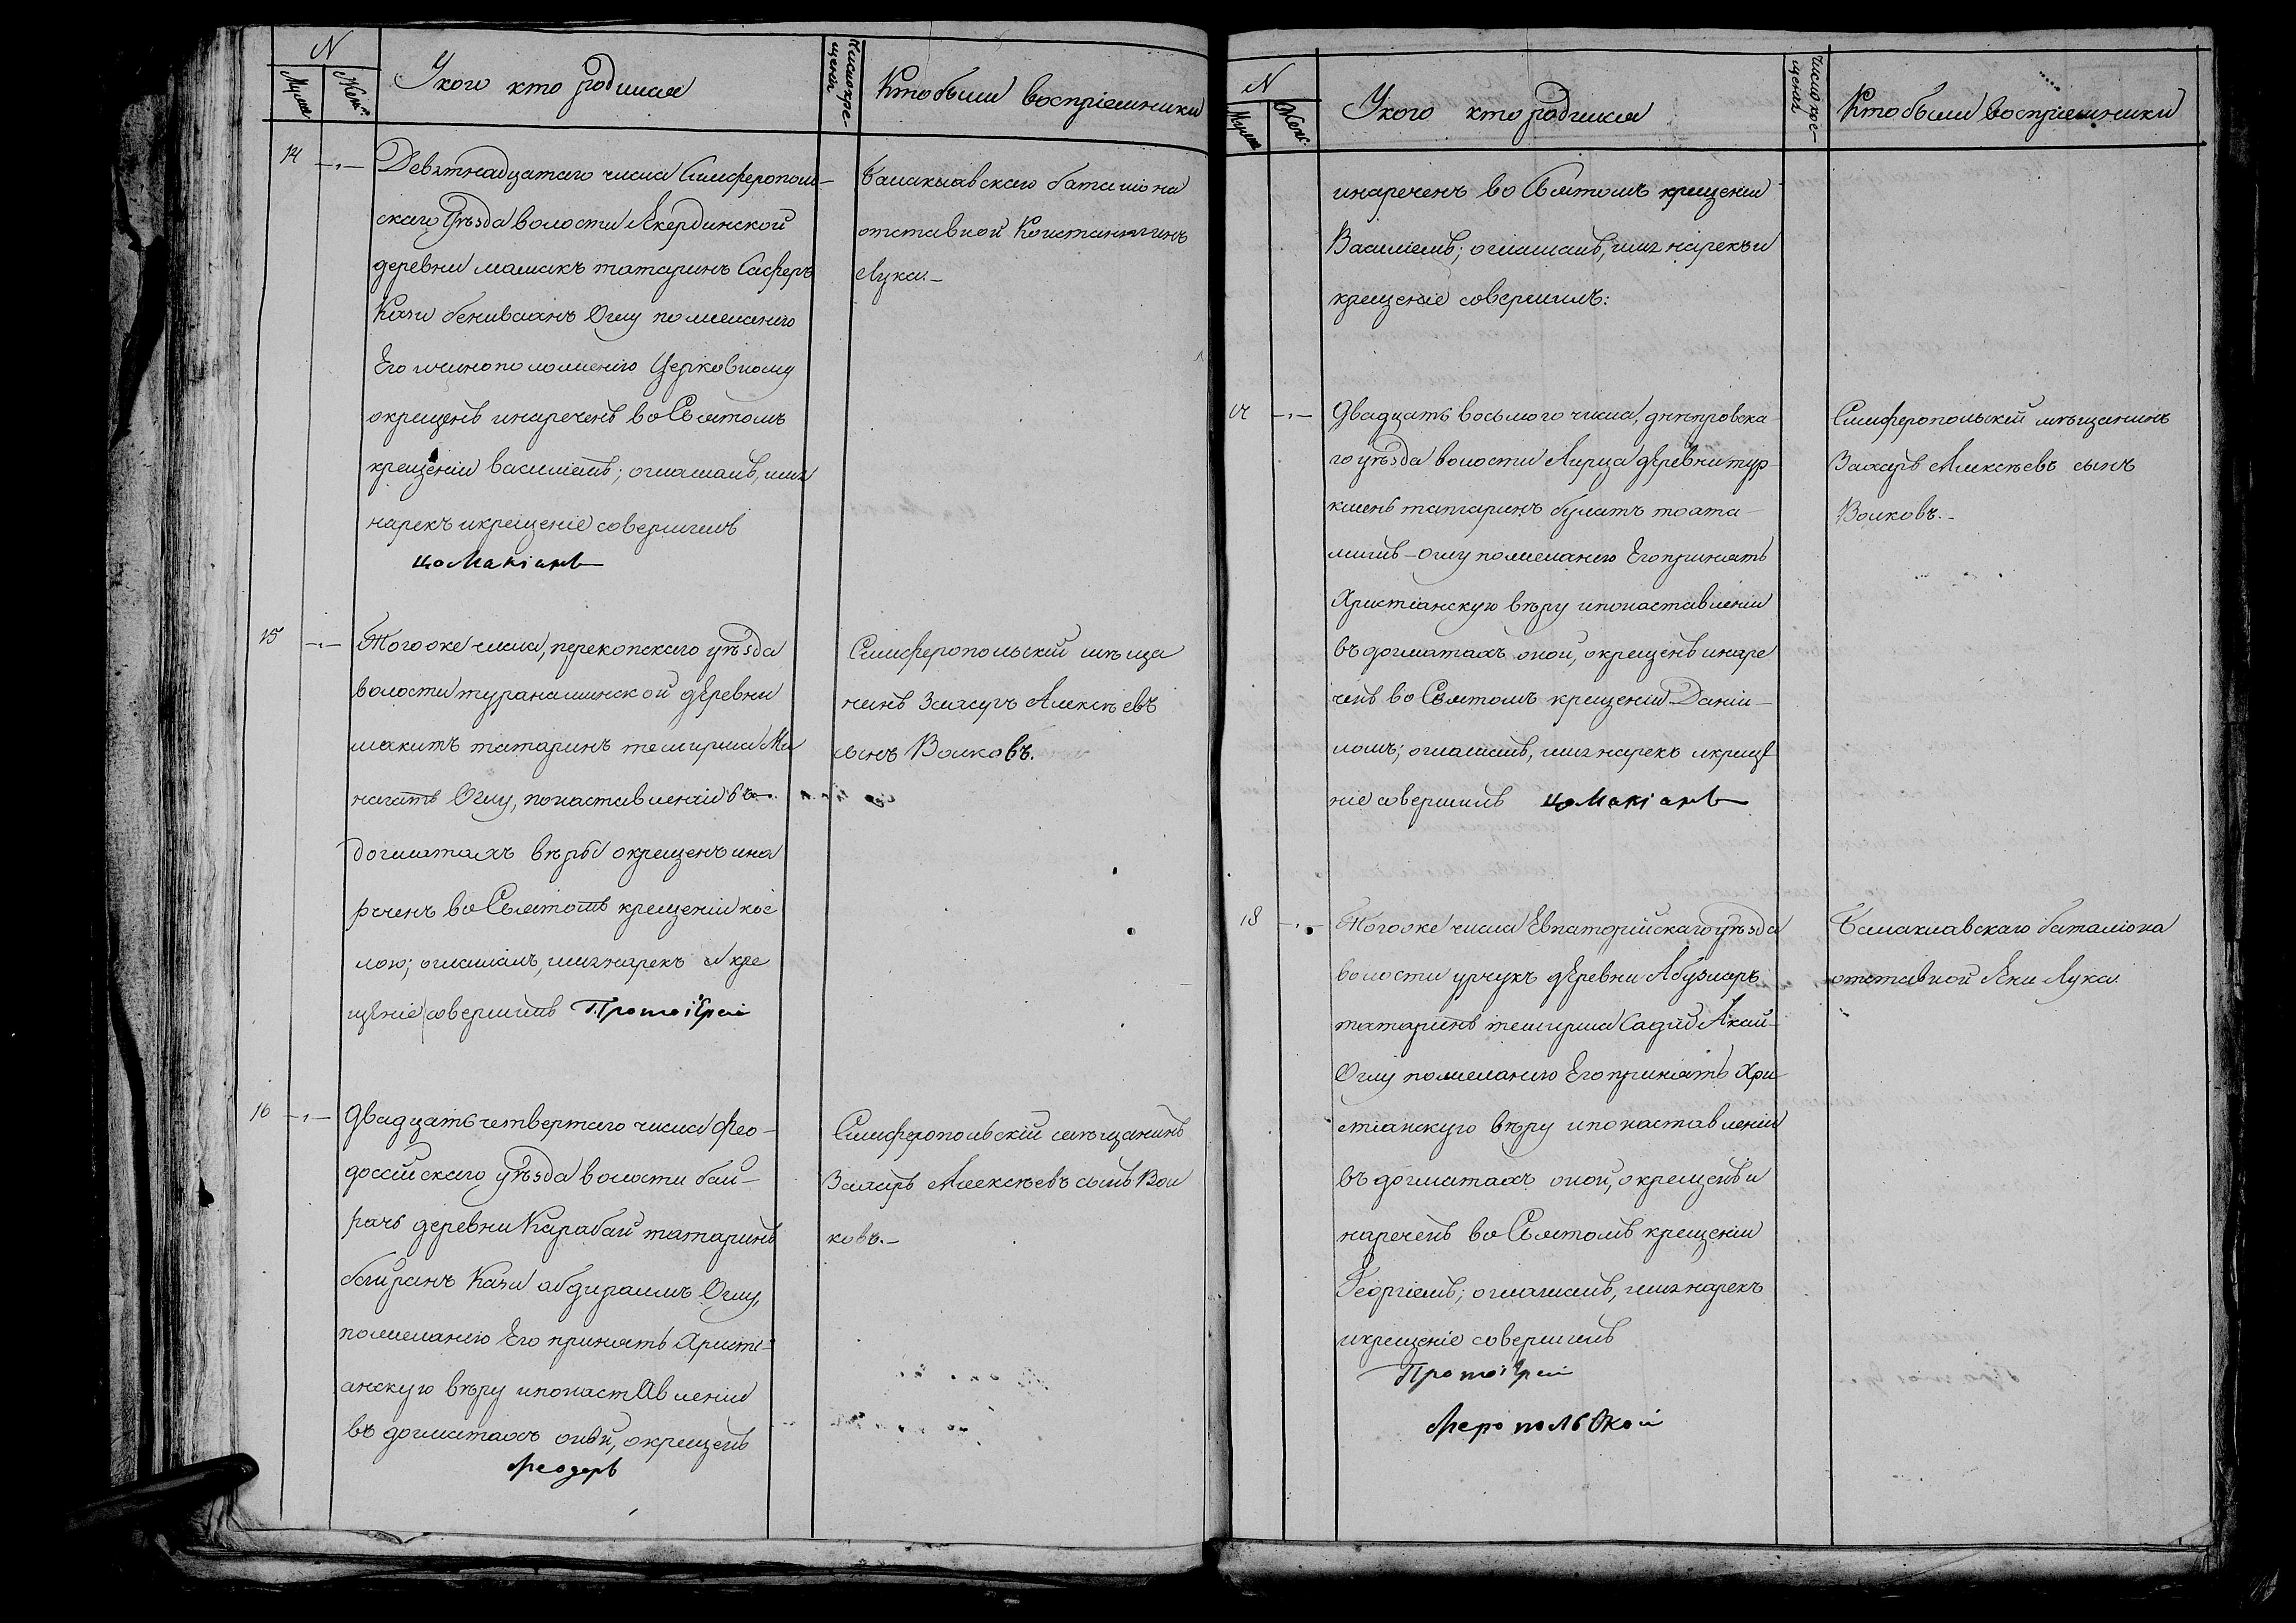 N
Муж.
Жен.
У кого кто родился
Число крещенія
Кто были воспріемники
14
Девятнадцатаго числа Симферополь-
скаго уѣзда волости Якердинской
деревни мамакъ татаринъ Саферъ
Кази Огму по желанію
Его и чиноположенію Церковному
окрещенъ и нареченъ во Святомъ
крещеніи василіемъ; оглашалъ, имя
нарекъ и крещеніе совершилъ
Балаклавскаго баталіона
отставной Константинъ
Лука.-
15
Того же числа, перекопскаго уѣзда
волости деревни
татаринъ темирша
Оглу, по наставленіи въ
догматахъ вѣры окрещенъ и на
реченъ во Святомъ крещеніи
оглашалъ, имя нарекъ и кре
щеніе совершилъ Протоіерей
Симферопольскій мѣща
нинъ Захаръ Алексѣевъ
сынъ Волковъ.
16
двадцать четвертаго числа Фео-
досійскаго уѣзда волости бай-
рачь деревни Карабай татаринъ
Кази абдираимъ Оглу,
по желанію Его принять Христі-
анскую вѣру и по наставленіи
въ догматахъ оной, окрещенъ
Феодоръ
Симферопольскій мѣщанинъ
Захаръ Алексѣевъ сынъ Вол
ковъ.-
N
Муж.
Жен.
У кого кто родился
Число крещенія
Кто были воспріемники
и нареченъ во Святомъ крещеніи
Василіемъ; оглашалъ, имя нарекъ и
крещеніе совершилъ:
17
Двадцать восьмого числа, днѣпровска
го уѣзда волости деревни тур
кмень татаринъ булатъ
Оглу по желанію Его принять
Христіанскую вѣру и по наставленіи
въ догматахъ оной, окрещенъ и наре
ченъ во Святомъ крещеніи Даніи-
ломъ; оглашалъ, имя нарекъ и креще
ніе совершилъ
Симферопольскій мѣщанинъ
Захаръ Алексѣевъ сынъ
Волковъ.-
18
Того же числа Евпаторійскаго уѣзда
волости урчукъ деревни Абузларъ
татаринъ темирша
Оглу по желанію Его принять Хри
стіанскую вѣру и по наставленіи
въ догматахъ оной, окрещенъ и
нареченъ во Святомъ крещеніи
Георгіемъ; оглашалъ, имя нарекъ
и крещеніе совершилъ
Протоіерей
Балаклавскаго баталіона
отставной Яни Лука.